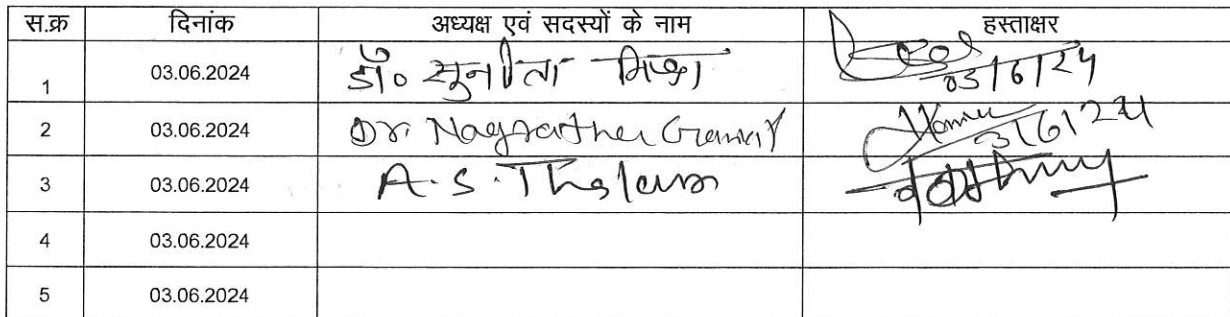 स.क्र दिनांक अध्यक्ष एवं सदस्यों के नाम हस्ताक्षर
1 03.06.2024 डॉ० सुनीता मिश्रा 03/6/24
2 03.06.2024 Dr. 3/6/24
3 03.06.2024 A.S.
4 03.06.2024
5 03.06.2024